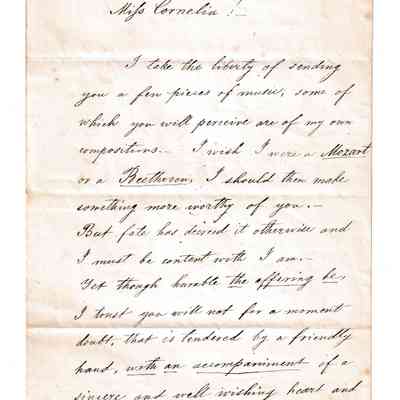 Miss Cornelia!—
I take the liberty of sending
you a few pieces of music, some of
which you will perceive are of my own
compositions.— I wish I were a Mozart
or a Beethoven, I should then make
something more worthy of you.—
But fate has decreed it otherwise and
I must be content with I am.—
Yet though humble the offering be,
I trust you will not for a moment
doubt, that is tendered by a friendly
hand, with an accompaniment of a
sincere and well wishing heart and